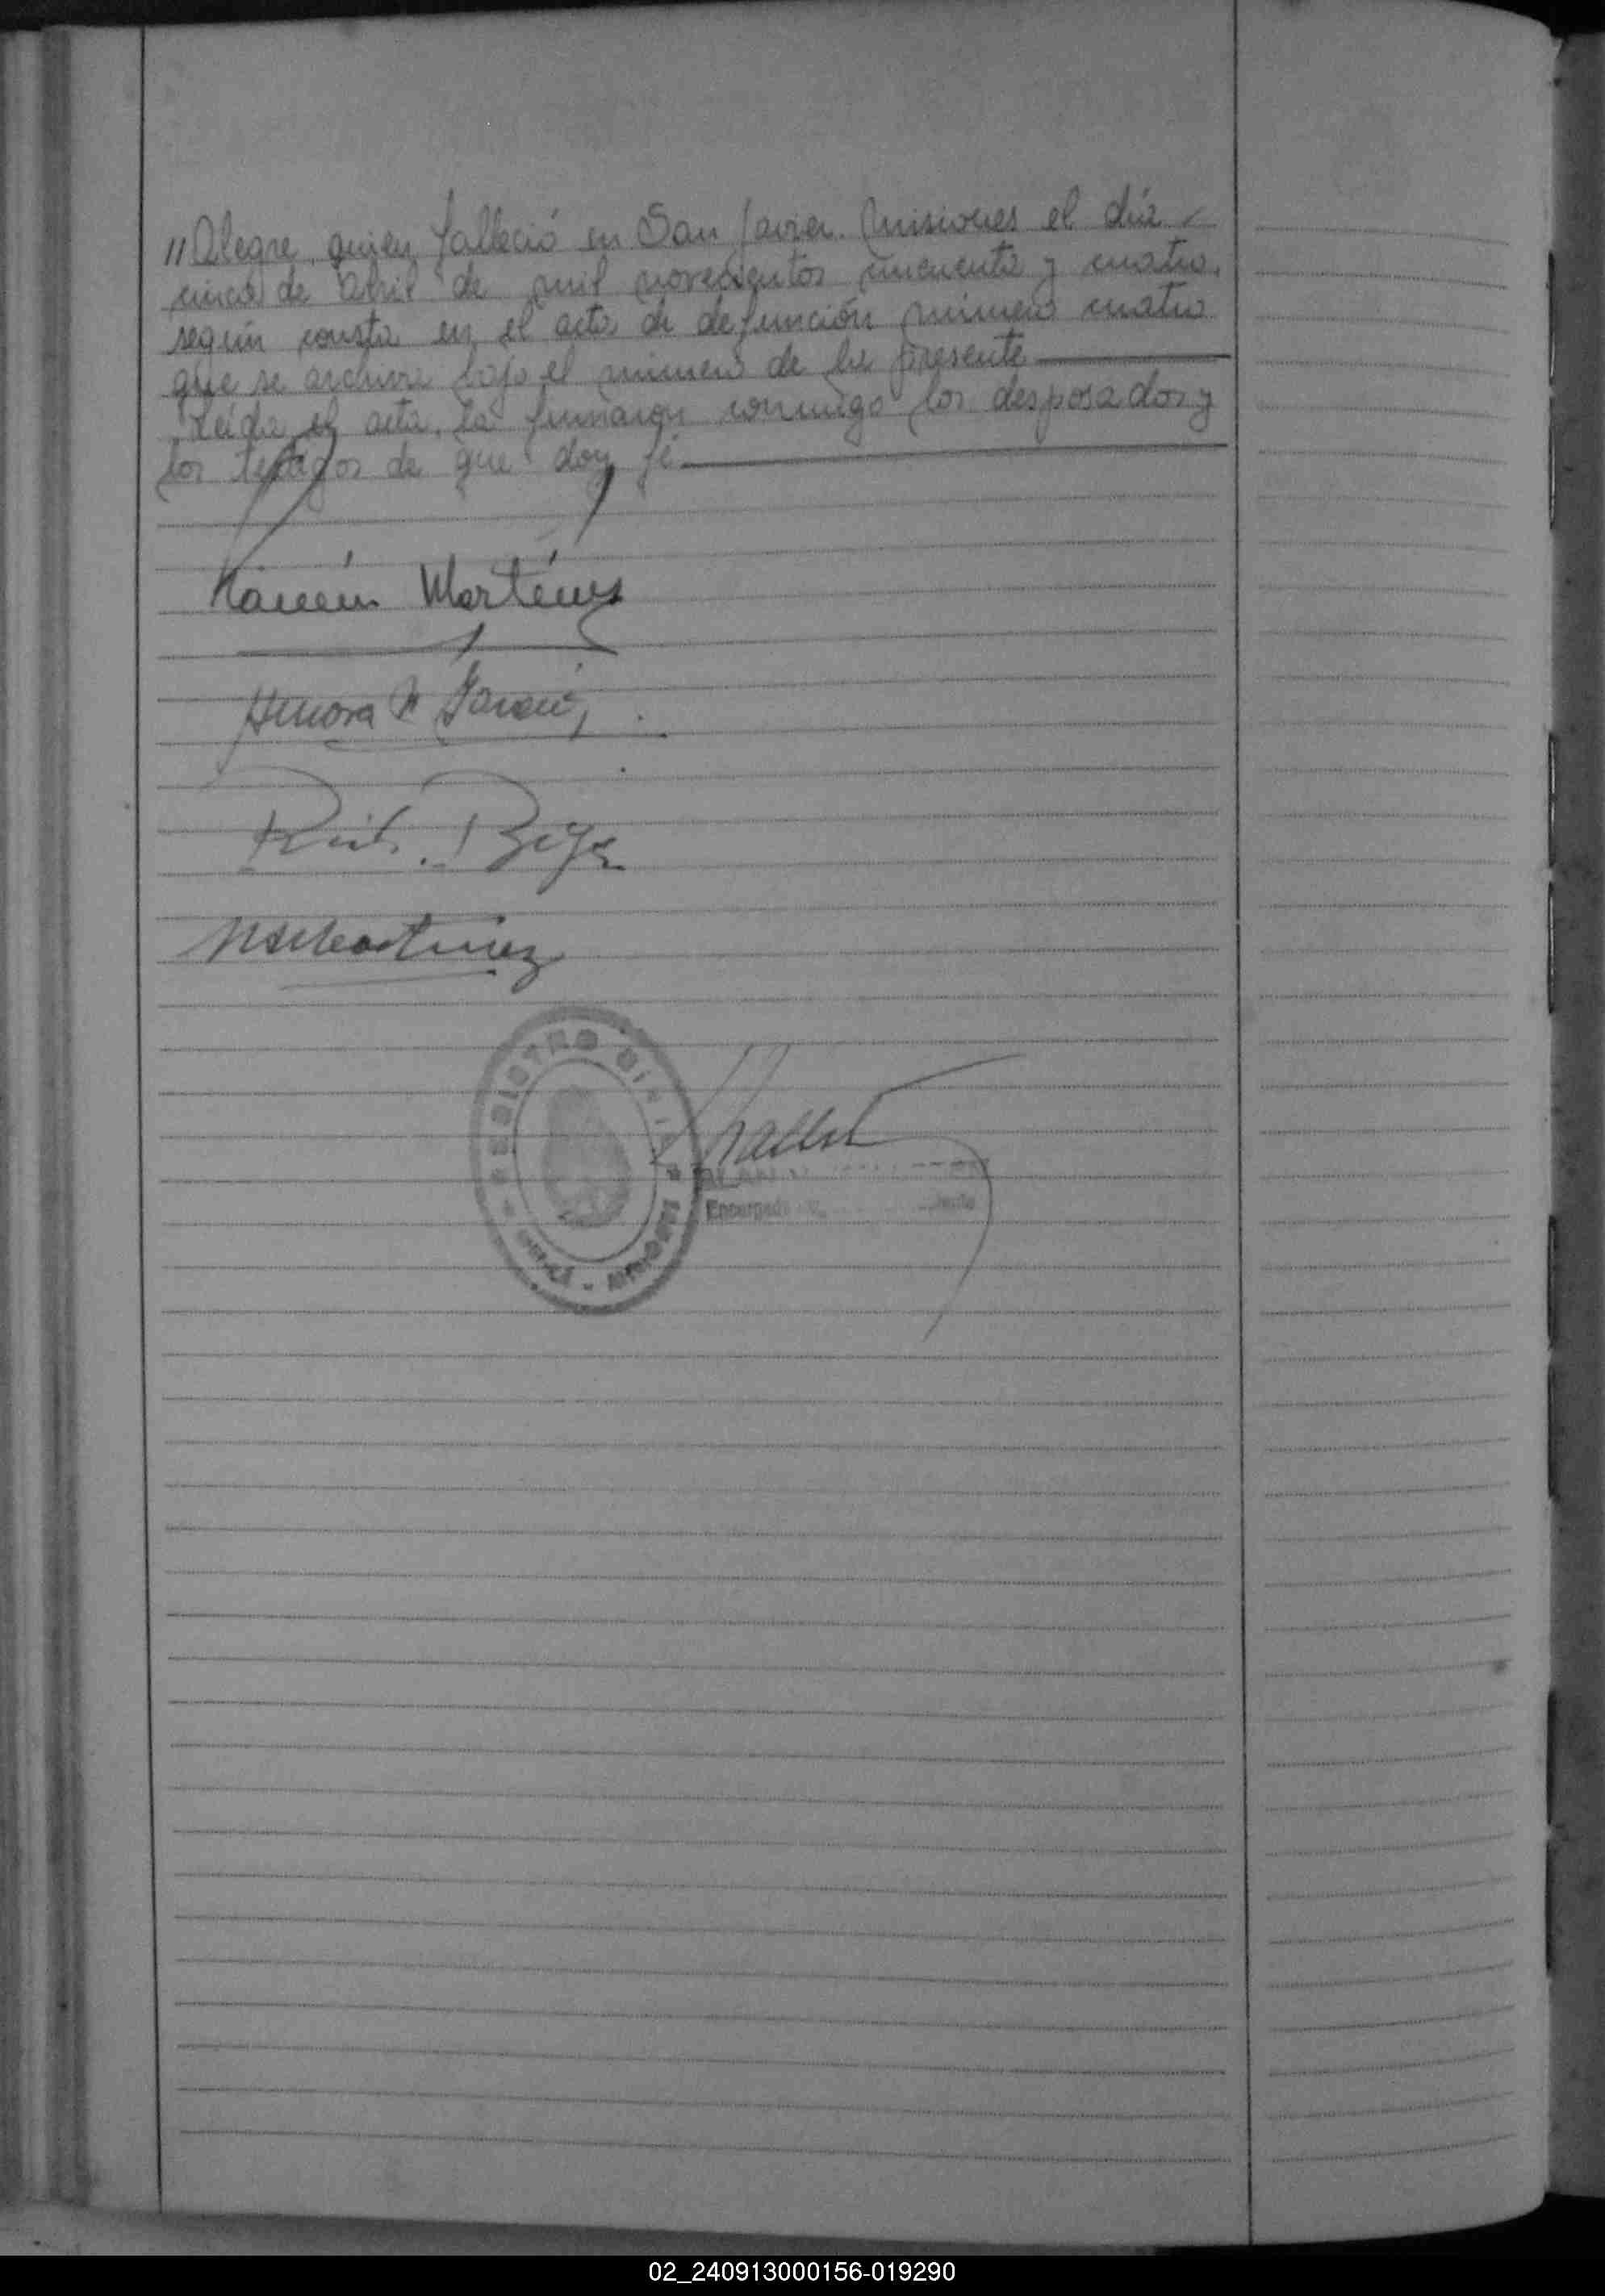 //Alegre, quien falleció en San Javier. Misiones el día
cinco de Abril de mil novecientos cincuenta y cuatro,
según consta en el acta de defunción número cuatro
que se archiva bajo el número de la presente
Leída el acta, la firmaron conmigo los desposados y
los testigos de que doy fé
Ramón Martínez
Martinez
REGISTRO CIVIL
Encargad
02_240913000156-019290